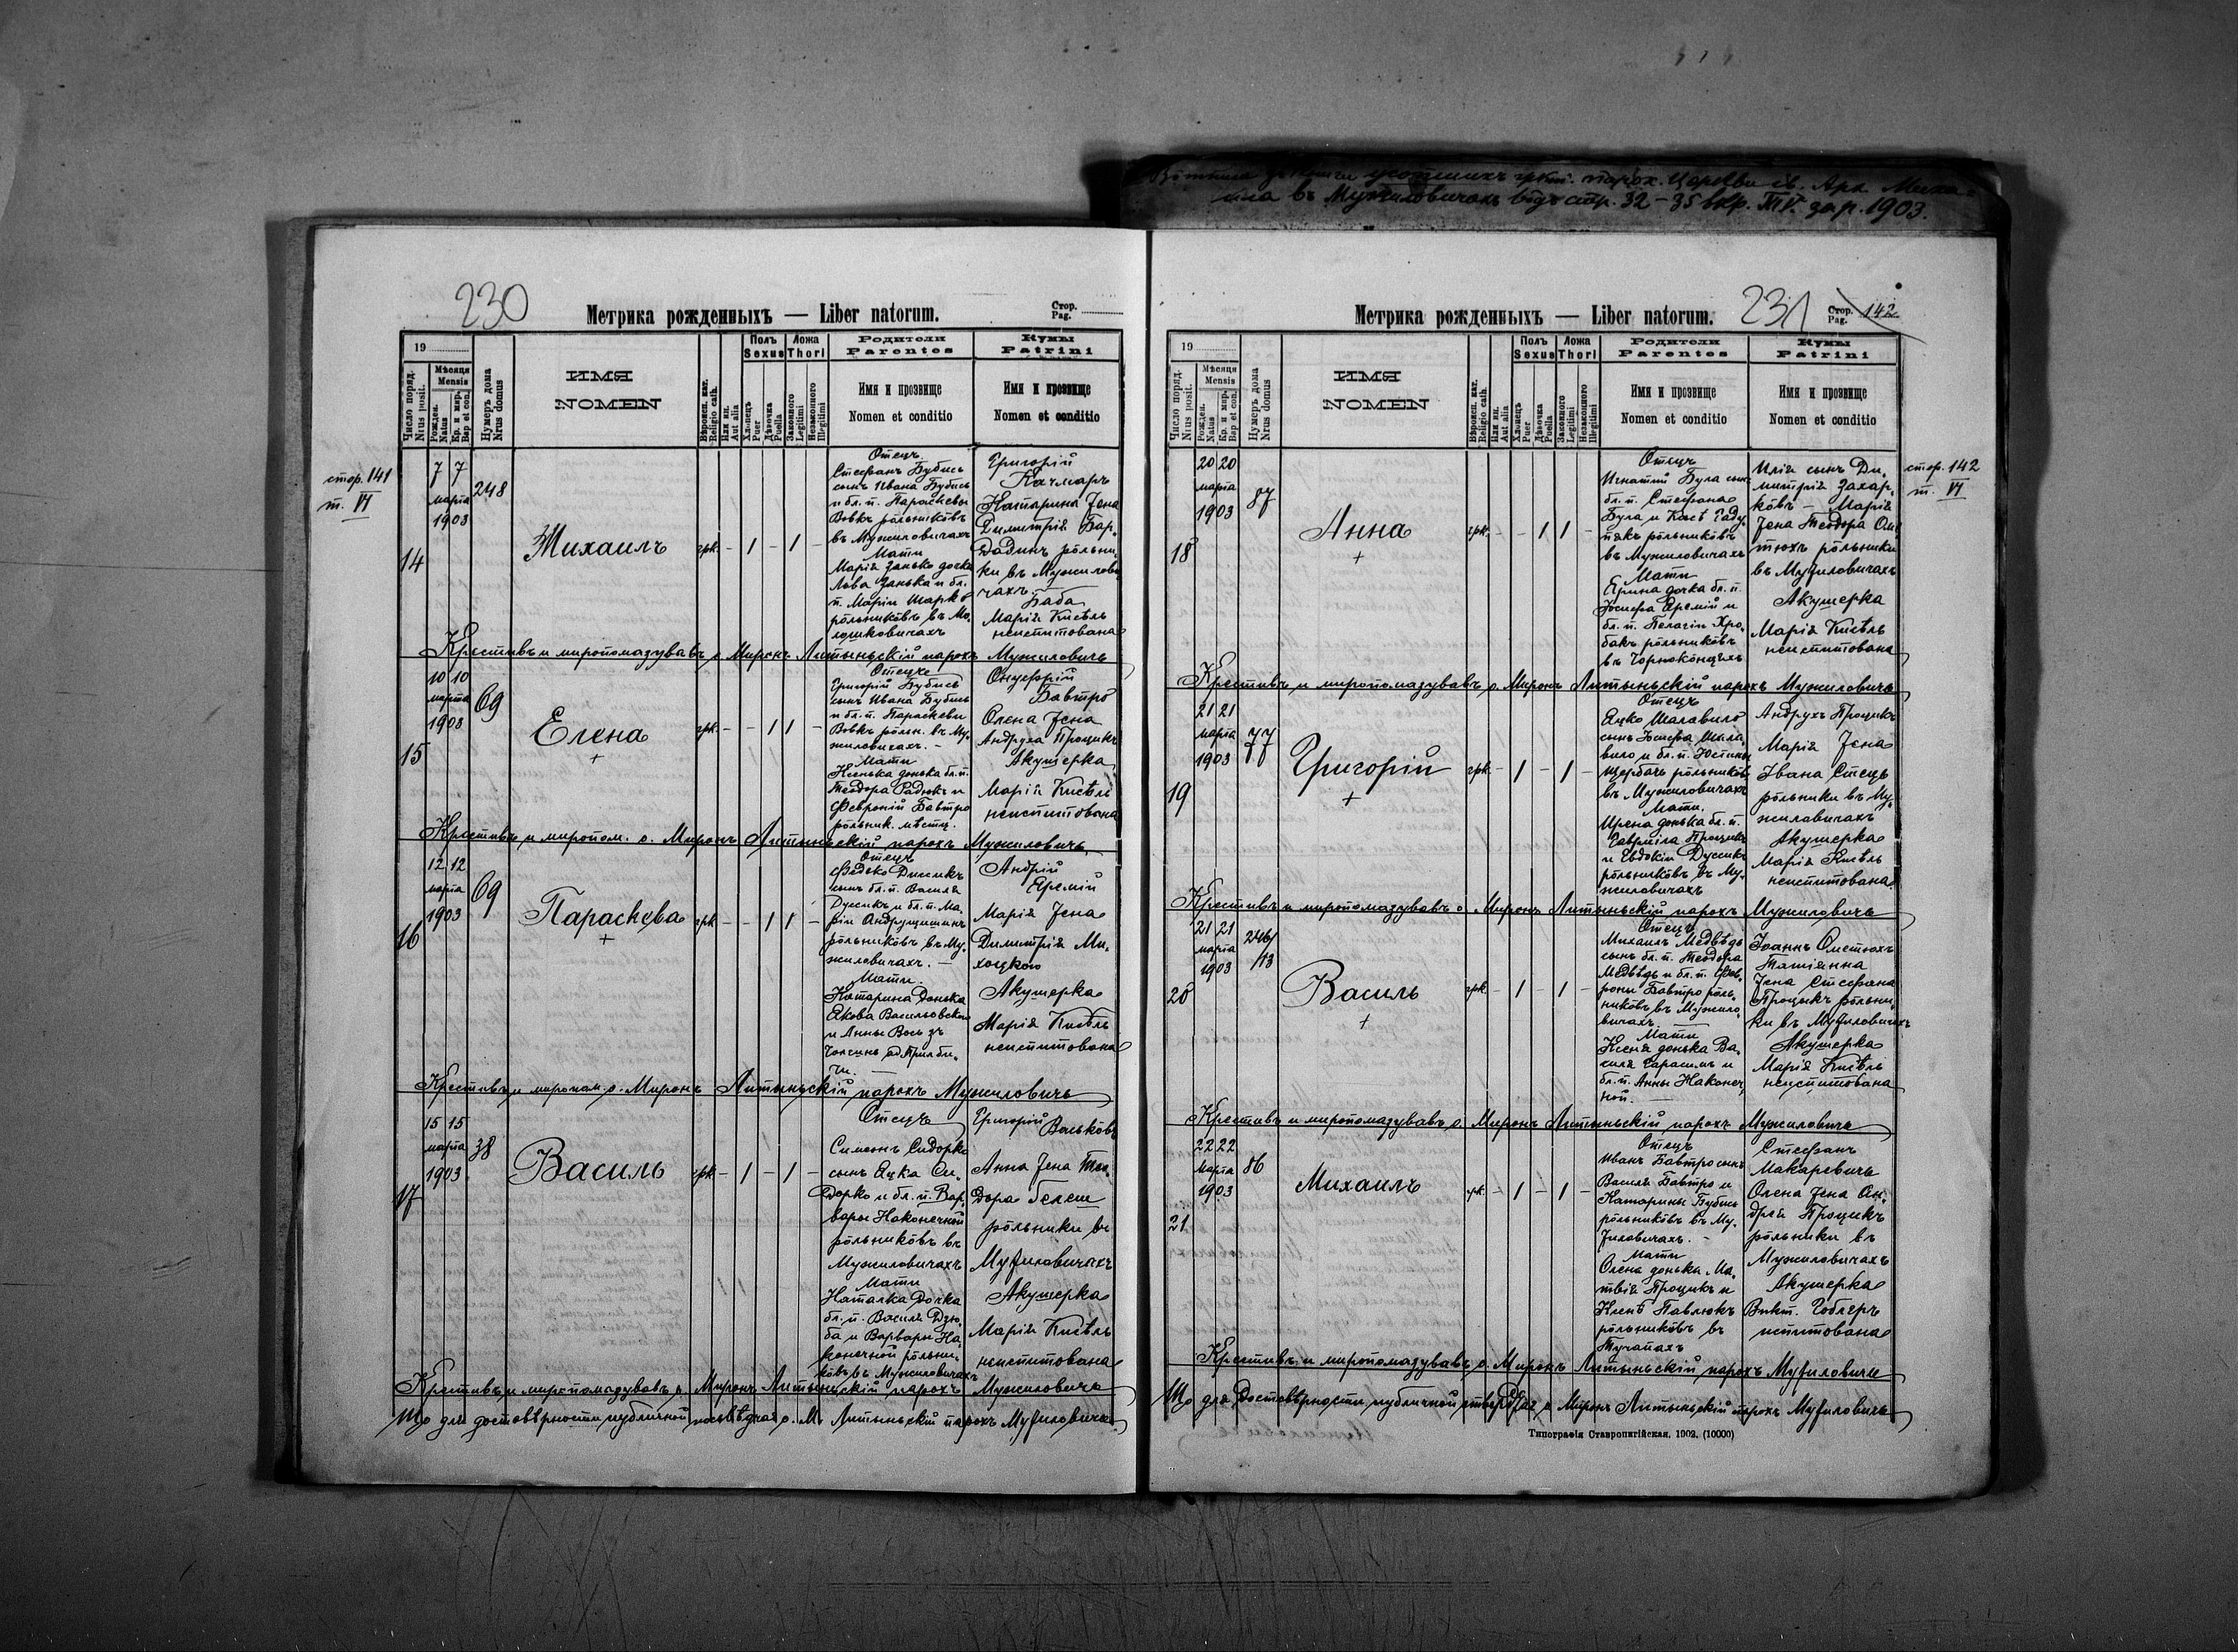 230
Метрика рожденныхъ — Liber natorum.
Стор.
Pag.
19
Число поряд.
Nrus posit.
Мѣсяця
Mensis
Рожден.
Natus
Кр. и мѵр.
Bap et con.
Нумеръ дома
Nrus domus
ИМЯ
NOMEN
Вѣроисп. кат.
Religio cath.
Или ин.
Aut alia
Полъ
Sexus
Хлопецъ
Puer
Дѣвочка
Puella
Ложа
Thori
Законного
Legitimi
Незаконного
Illegitimi
Родители
Parentes
Имя и прозвище
Nomen et conditio
Кумы
Patrini
Имя и прозвище
Nomen et conditio
стор. 141
т. VI
14
7 7
марта
1903
248
Михаилъ
грк. – 1 – 1 –
Отецъ
Стефанъ Бубись
сынъ Ивана Бубись
и бл. п. Параскевы
Вовкъ рôльникôвъ
въ Мужиловичахъ
Мати
Марія Ванько дочка
Льва Ванька и бл.
п. Маріи Шарко
рôльникôвъ въ Мо-
лошковичахъ
Григорій
Качмаръ
Катарина жена
Димитрія Бар-
дадинъ рôльни-
ки въ Мужилови-
чахъ. —
Баба
Марія Кисѣль
неиспитована
Крестивъ и миропомазувавъ о. Миронъ Литыньскій парохъ Мужиловичъ
15
10 10
марта
1903
69
Елена
+
грк. – – 1 1 –
Отецъ
Григорій Бубись
сынъ Ивана Бубись
и бл. п. Параскеви
Вовкъ рôльн. въ Му-
жиловичахъ. –
Мати
Ксенька донька бл. п.
Теодора Радюкъ и
Февроній Бавтро
рôльник. мѣстц.
Онуфрій
Бавтро
Олена жена
Андруха Процикъ
Акушерка
Марія Кисѣль
неиспитована
Крестивъ и миропом. о. Миронъ Литыньскій парохъ Мужиловичъ.
16
12 12
марта
1903
69
Параскева
+
грк – – 1 1 –
Отецъ
Федько Дусикъ
сынъ бл. п. Василя
Дусикъ и бл. п. Ма-
ріи Андрушишинъ
рôльникôвъ въ Му-
жиловичахъ. —
Мати.
Катарина донька
Якова Васильовского
и Анны Вось зъ
Андрій
Еремій
Марія жена
Димитрія Ми-
хоцкого
Акушерка
Марія Кисѣль
неиспитована
Крестивъ и миропом. о. Миронъ Литыньскій парохъ Мужиловичъ
17
15 15
марта
1903
38
Василь
грк – 1 – 1 –
Отецъ
Симеонъ Сидорко
сынъ Яцка Си-
дорко и бл. п. Вар-
вары Наконечной
рôльникôвъ въ
Мужиловичахъ
Мати
Наталка дочка
бл. п. Василя Дзю-
ба и Варвары На-
конечной рôльни-
кôвъ въ Мужиловичахъ
Григорій Васькôвъ
Анна жена Тео-
дора Гелеш
рôльники въ
Мужиловичахъ
Акушерка
Марія Кисѣль
неиспитована
Крестивъ и миропомазувавъ о. Миронъ Литыньскій парохъ Мужиловичъ
Що для достовѣрности публичной посвѣдчае о. М. Литыньскій парохъ Мужиловичъ.
въ Мужиловичахъ вôдъ стр. 32 – 35 вкр. за р. 1903.
231
Метрика рожденныхъ — Liber natorum.
Стор.
Pag.
142
19
Число поряд.
Nrus posit.
Мѣсяця
Mensis
Рожден.
Natus
Кр. и мѵр.
Bap et con.
Нумеръ дома
Nrus domus
ИМЯ
NOMEN
Вѣроисп. кат.
Religio cath.
Или ин.
Aut alia
Полъ
Sexus
Хлопецъ
Puer
Дѣвочка
Puella
Ложа
Thori
Законного
Legitimi
Незаконного
Illegitimi
Родители
Parentes
Имя и прозвище
Nomen et conditio
Кумы
Patrini
Имя и прозвище
Nomen et conditio
стор. 142
т. VI
18
20 20
марта
1903
87
Анна
+
грк. – – 1 1 –
Отецъ
Игнатій Була сынъ
бл. п. Стефана
Була и Касѣ Гаду-
пякъ рôльникôвъ
въ Мужиловичахъ
Мати
Ярина дочка бл. п.
Іосифа Яремій и
бл. п. Пелагіи Хро-
бакъ рôльникôвъ
въ Чорнокôнцяхъ
Илія сынъ Ди-
митрія Захар-
кôвъ — Марія
жена Теодора Оме-
тюхъ рôльники
въ Мужиловичахъ
Акушерка
Марія Кисѣль
неиспитована
Крестивъ и миропомазувавъ о. Миронъ Литыньскій парохъ Мужиловичъ
19
21 21
марта
1903
77
Григорій
+
грк. – 1 – 1 –
Отецъ
Яцко Шалавило
сынъ Іосифа Шала-
вило и бл. п. Юстины
Щербачъ рôльникôвъ
въ Мужиловичахъ
Мати.
Ирена донька бл. п.
Гавріила Процикъ
и Евдокіи Дусикъ
рôльникôвъ въ Му-
жиловичахъ
Андрухъ Процикъ
Марія жена
Ивана Стецъ
рôльники въ Му-
жиловичахъ
Акушерка
Марія Кисѣль
неиспитована.
Крестивъ и миропомазувавъ о. Миронъ Литыньскій парохъ Мужиловичъ
20
21 21
марта
1903
246/
/13
Василь
+
грк. – 1 – 1 –
Отецъ
Михаилъ Медвѣдь
сынъ бл. п. Теодора
Медвѣдь и бл. п. Фев-
роніи Бавтро рôль-
никôвъ въ Мужило-
вичахъ. —
Мати
Ксеня донька Ва-
силя Гарасимъ и
бл. п. Анны Наконеч-
ной. —
Іоаннъ Ометюхъ
Татіянна
жена Стефана
Процыкъ рôльни-
ки въ Мужиловичахъ
Акушерка
Марія Кисѣль
неиспитована
Крестивъ и миропомазувавъ о. Миронъ Литыньскій парохъ Мужиловичъ
21
22 22
марта
1903
86
Михаилъ
грк. – 1 – 1 –
Отецъ
Иванъ Бавтро сынъ
Василя Бавтро и
Катарины Бубись
рôльникôвъ въ Му-
жиловичахъ. –
Мати
Олена донька Ма-
твія Процикъ и
Ксенѣ Павлюкъ
рôльникôвъ въ
Тучапахъ
Стефанъ
Макаревичъ
Олена жена Ан-
дрея Процикъ
рôльники въ
Мужиловичахъ
Акушерка
Викт. Гоблеръ
испитована
Крестивъ и миропомазувавъ о. Миронъ Литыньскій парохъ Мужиловичъ
Що для достовѣрности публичной стверджае о. Миронъ Литыньскій парохъ Мужиловичъ
Типографія Ставропигійская, 1902, (10000)